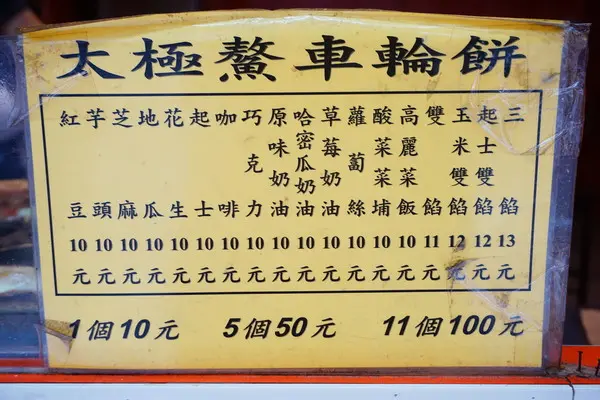 太極鰲車輪餅
紅豆10元
芋頭10元
芝麻10元
地瓜10元
花生10元
起士10元
咖啡10元
巧克力10元
原味奶油10元
哈密瓜奶油10元
草莓奶油10元
蘿蔔絲10元
酸菜菜埔10元
高麗菜飯10元
雙餡11元
玉米雙餡12元
起士雙餡12元
三餡13元
1個10元 5個50元 11個100元